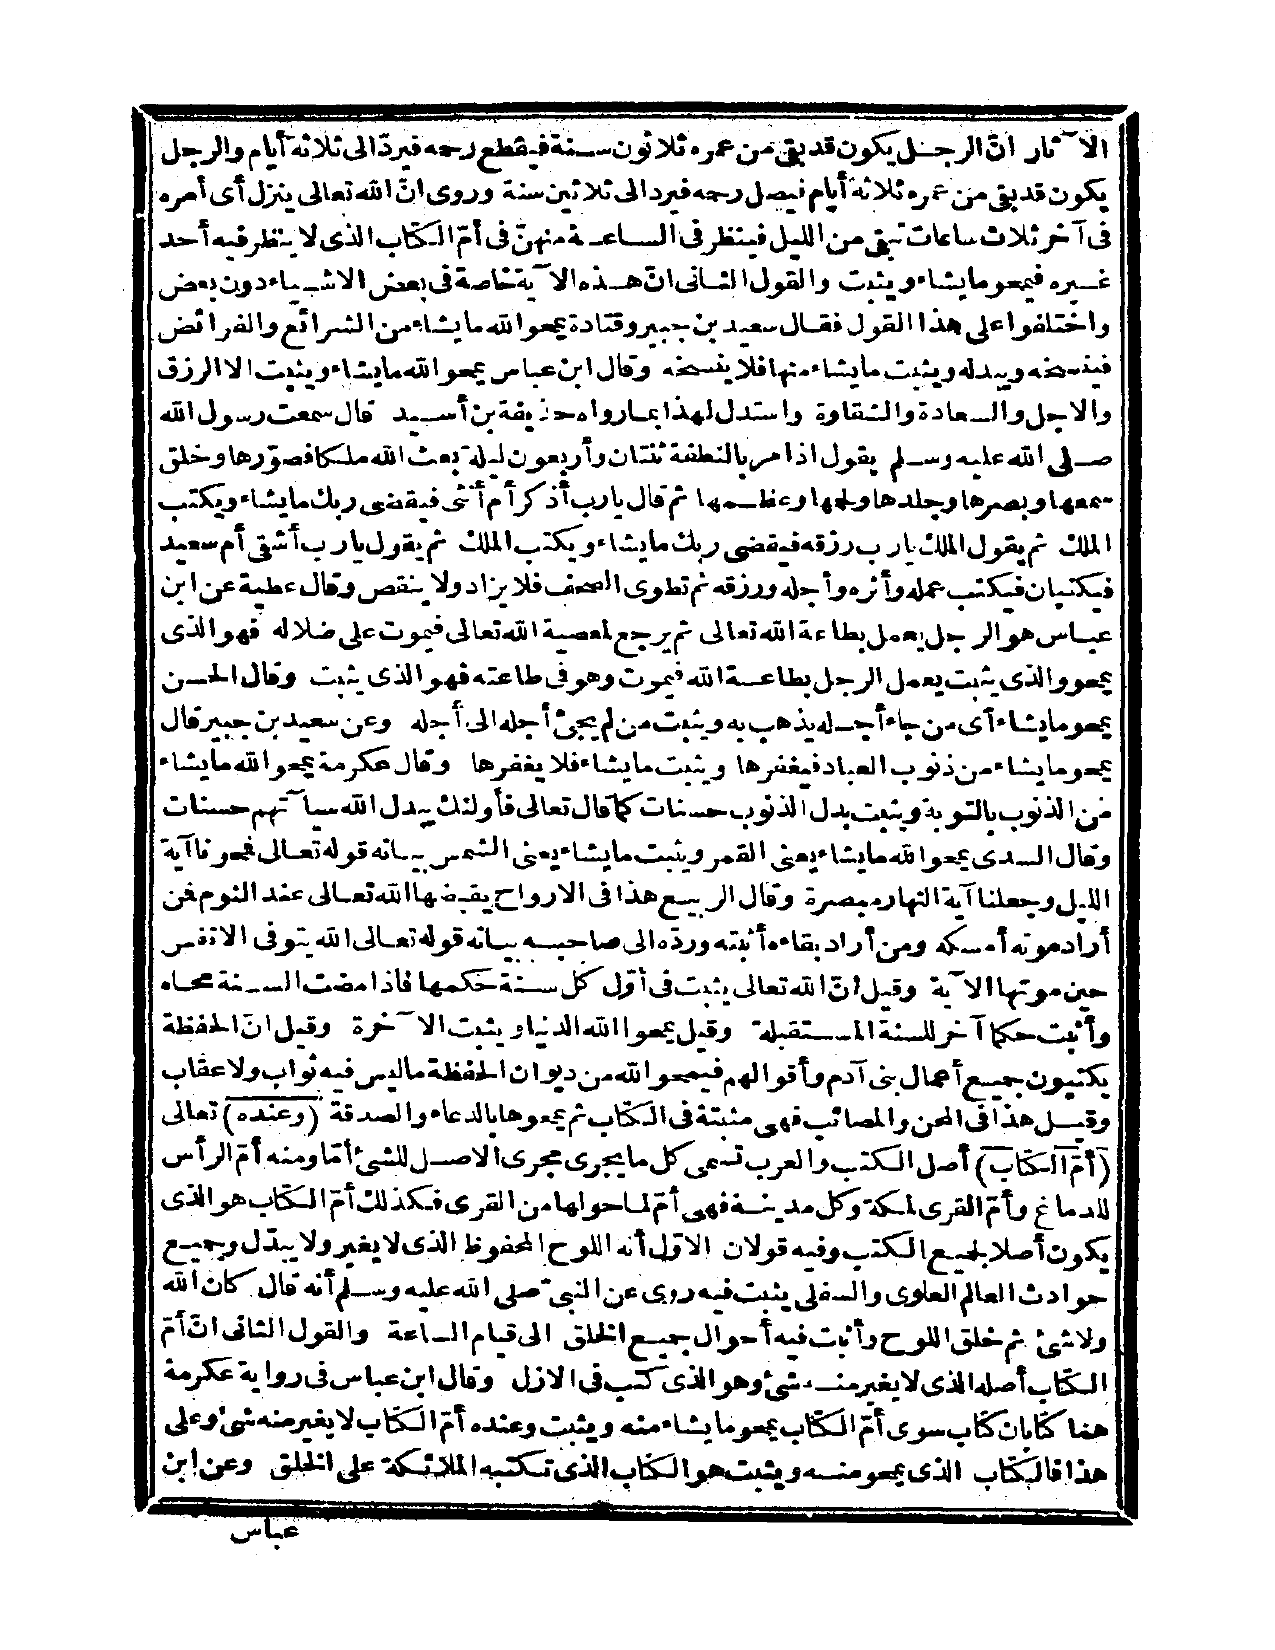 الآثار انّ الرجل يكون قد بقى من عمره ثلاثون سنة فيقطع رحمه فيردّ الى ثلاثة أيام والرجل
يكون قد بقى من عمره ثلاثة أيام فيصل رحمه فيرد الى ثلاثين سنة وروى انّ الله تعالى ينزل أى أمره
فى آخر ثلاث ساعات تبقى من الليل فينظر فى الساعة منهنّ فى أمّ الكتاب الذى لا ينظر فيه أحد
غيره فيمحو ما يشاء ويثبت والقول الثانى انّ هذه الآية خاصة فى بعض الاشياء دون بعض
واختلفوا على هذا القول فقال سعيد بن جبير وقتادة يمحوا الله ما يشاء من الشرائع والفرائض
فينسخه ويبدله ويثبت ما يشاء منها فلا ينسخه وقال ابن عباس يمحوا الله ما يشاء ويثبت الا الرزق
والاجل والسعادة والشقاوة واستدل لهذا بما رواه حذيفة بن أسيد قال سمعت رسول الله
صلى الله عليه وسلم يقول اذا مر بالنطفة ثنتان وأربعون ليلة بعث الله ملكا فصوّرها وخلق
سمعها وبصرها وجلدها ولحمها وعظمها ثم قال يا رب أذكر أم أنثى فيقضى ربك ما يشاء ويكتب
الملك ثم يقول الملك يا رب رزقه فيقضى ربك ما يشاء ويكتب الملك ثم يقول يا رب أشقى أم سعيد
فيكتبان فيكتب عمله وأثره وأجله ورزقه ثم تطوى الصحف فلا يزاد ولا ينقص وقال عطية عن ابن
عباس هو الرجل يعمل بطاعة الله تعالى ثم يرجع لمعصية الله تعالى فيموت على ضلاله فهو الذى
يمحو والذى يثبت يعمل الرجل بطاعة الله فيموت وهو فى طاعته فهو الذى يثبت وقال الحسن
يمحو ما يشاء أى من جاء أجله يذهب به ويثبت من لم يجئ أجله الى أجله وعن سعيد بن جبير قال
يمحو ما يشاء من ذنوب العباد فيغفرها ويثبت ما يشاء فلا يغفرها وقال عكرمة يمحوا الله ما يشاء
من الذنوب بالتوبة ويثبت بدل الذنوب حسنات كما قال تعالى فأولئك يبدل الله سيآتهم حسنات
وقال السدى يمحوا لله ما يشاء يعنى القمر ويثبت ما يشاء يعنى الشمس بيانه قوله تعالى فمحونا آية
الليل وجعلنا آية النهار مبصرة وقال الربيع هذا فى الارواح يقبضها الله تعالى عند النوم فمن
أراد موته أمسكه ومن أراد بقاءه أثبته وردّه الى صاحبه بيانه قوله تعالى الله يتوفى الانفس
حين موتها الآية وقيل انّ الله تعالى يثبت فى أوّل كل سنة حكمها فاذا مضت السنة محاه
وأثبت حكما آخر للسنة المستقبلة وقيل يمحوا الله الدنيا ويثبت الآخرة وقيل انّ الحفظة
يكتبون جميع أعمال بنى آدم وأقوالهم فيمحوا الله من ديوان الحفظة ما ليس فيه ثواب ولا عقاب
وقيل هذا فى المحن والمصائب فهى مثبتة فى الكتاب ثم يمحوها بالدعاء والصدقة (وعنده) تعالى
(أمّ الكتاب) أصل الكتب والعرب تسمى كل ما يجرى مجرى الاصل للشئ أمّا ومنه أمّ الرأس
للدماغ وأمّ القرى لمكة وكل مدينة فهى أمّ لما حولها من القرى فكذلك أمّ الكتاب هو الذى
يكون أصلا لجميع الكتب وفيه قولان الاوّل أنه اللوح المحفوظ الذى لا يغير ولا يبدّل وجميع
حوادث العالم العلوى والسفلى يثبت فيه روى عن النبىّ صلى الله عليه وسلم أنه قال كان الله
ولا شئ ثم خلق اللوح وأثبت فيه أحوال جميع الخلق الى قيام الساعة والقول الثانى انّ أمّ
الكتاب أصله الذى لا يغير منه شئ وهو الذى كتب فى الازل وقال ابن عباس فى رواية عكرمة
هنا كتابان كتاب سوى أمّ الكتاب يمحو ما يشاء منه ويثبت وعنده أمّ الكتاب لا يغير منه شئ وعلى
هذا فالكتاب الذى يمحو منه ويثبت هو الكتاب الذى تكتبه الملائكة على الخلق وعن ابن
عباس